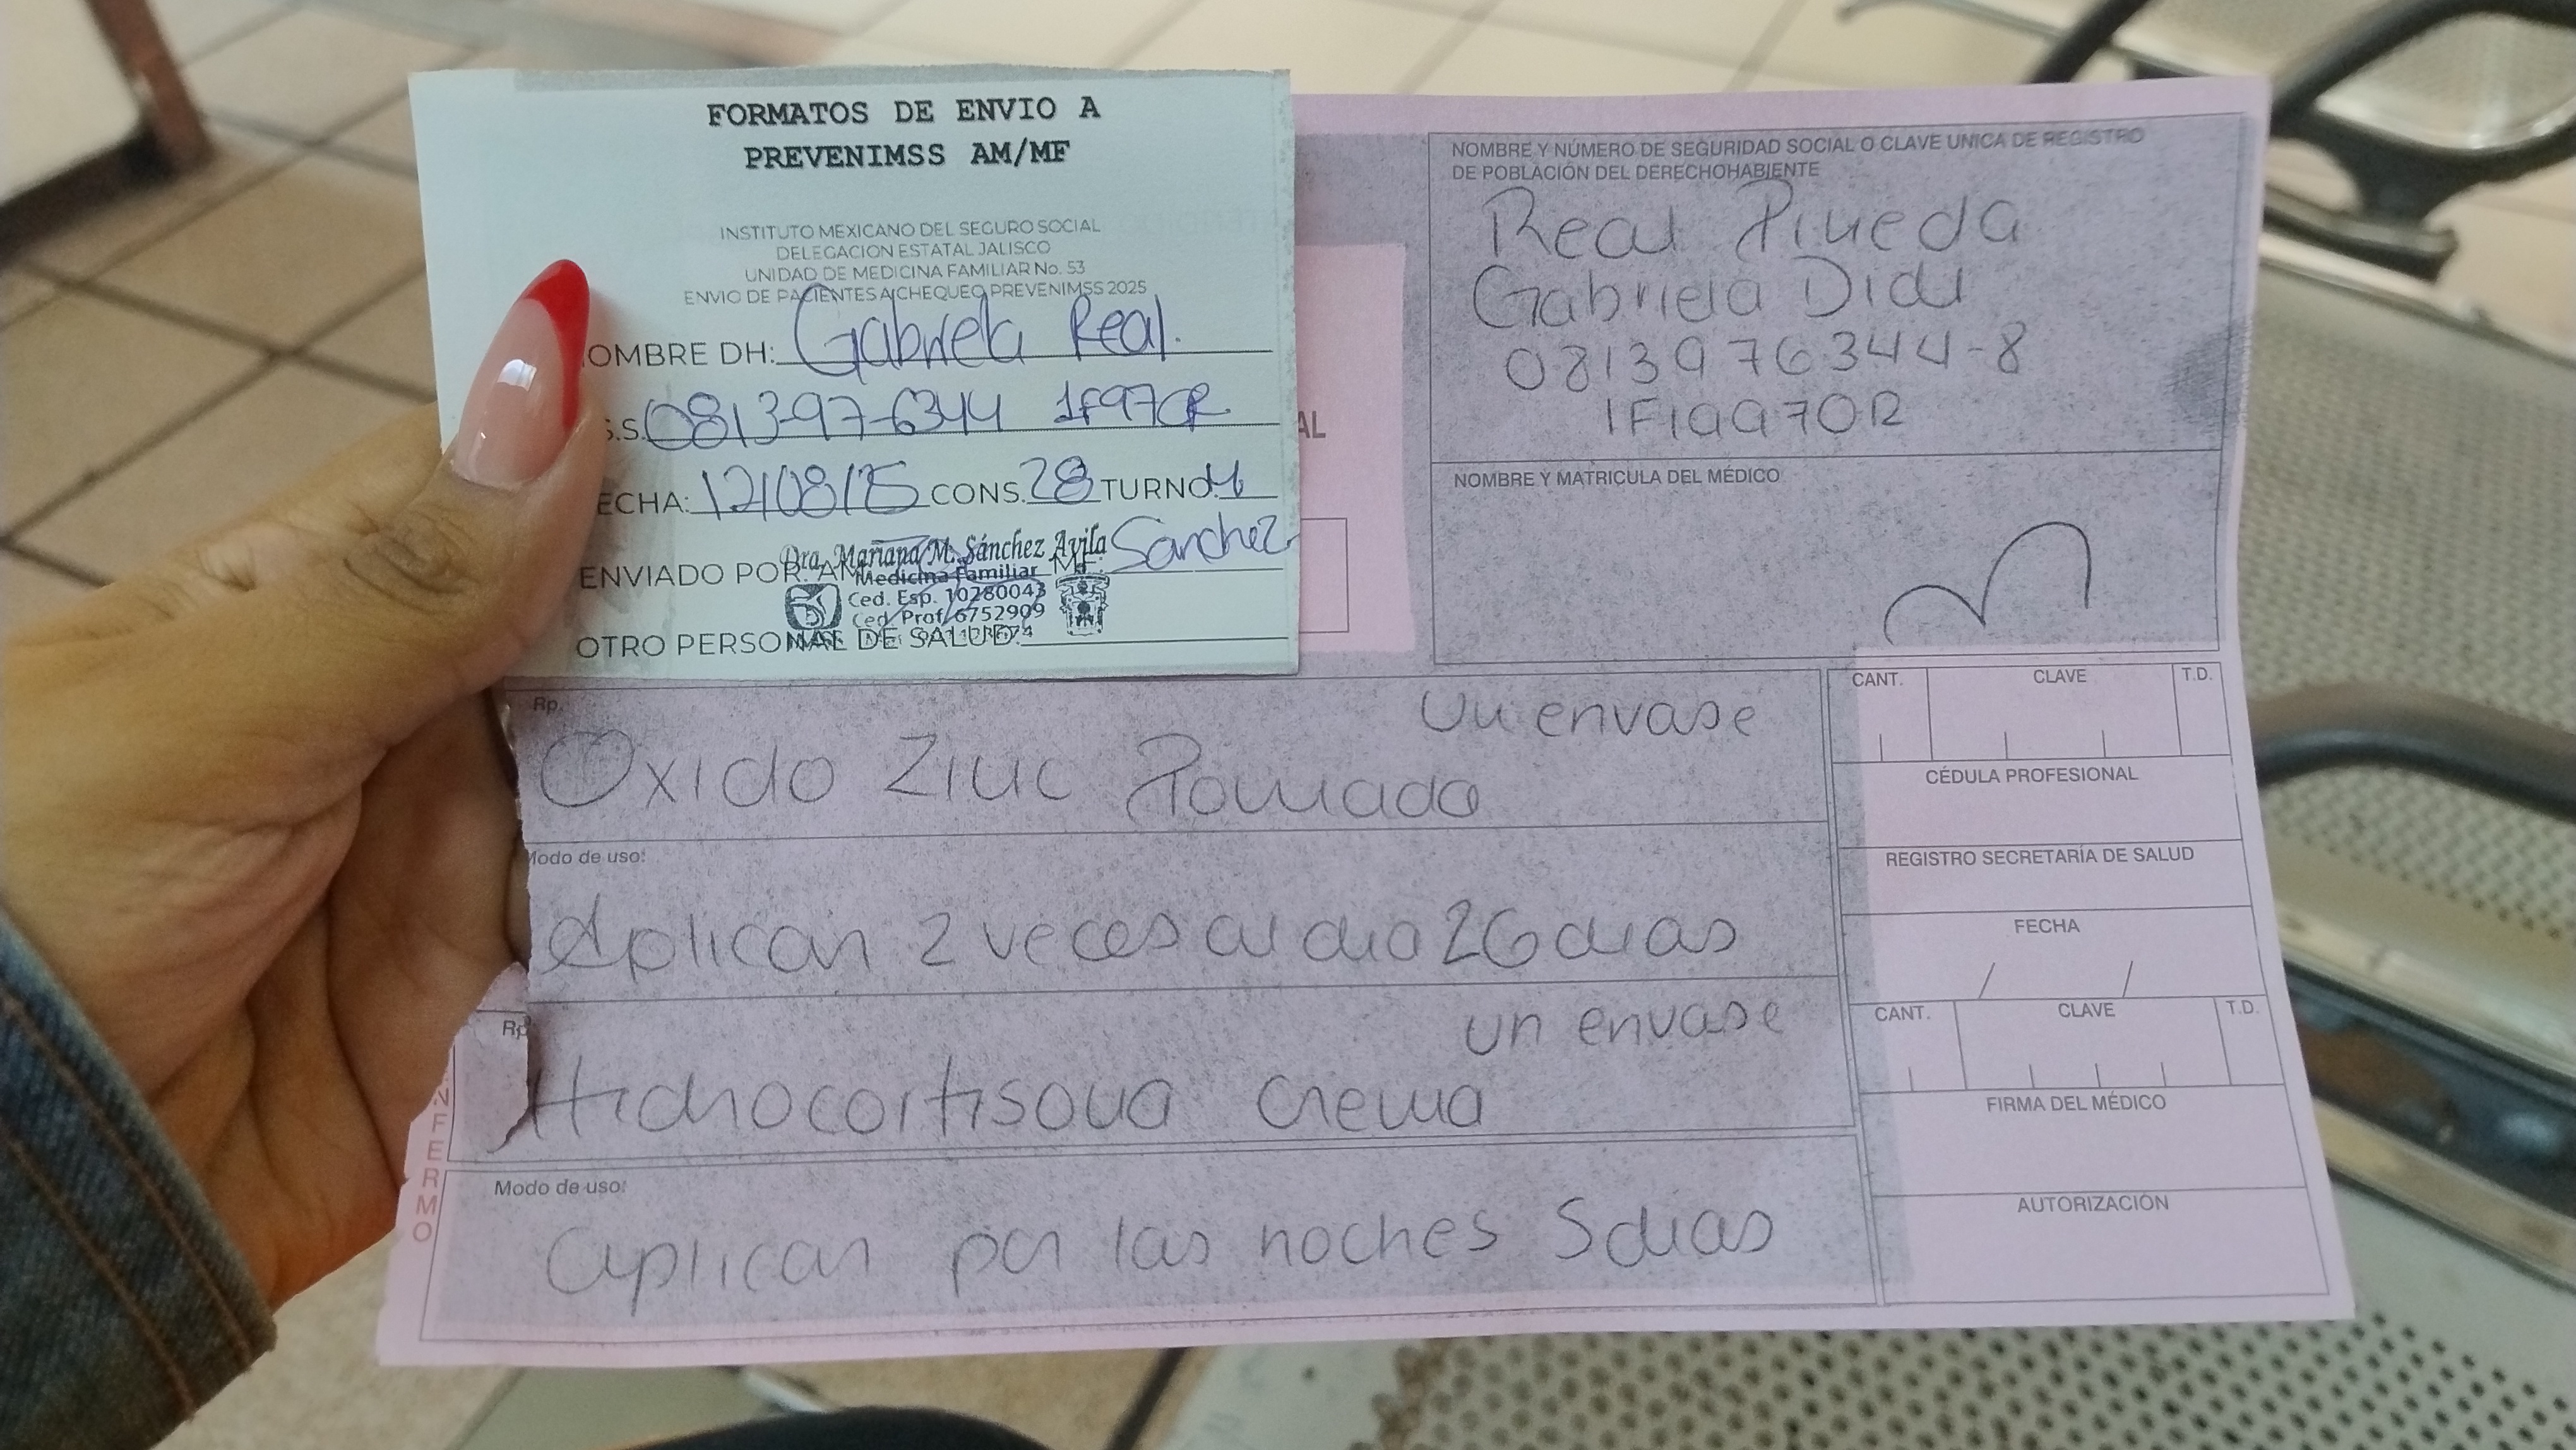 FORMATOS DE ENVIO A
PREVENIMSS AM/MF
INSTITUTO MEXICANO DEL SEGURO SOCIAL
DELEGACION ESTATAL JALISCO
UNIDAD DE MEDICINA FAMILIAR No. 53
ENVIO DE PACIENTES A CHEQUEO PREVENIMSS 2025
OMBRE DH: Gabriela Real.
S.S. 0813-97-6344 1F97OR
ECHA: 12/08/25 CONS. 28 TURNO M
Dra. Mariana M. Sánchez Avila
ENVIADO POR: AM MF: Sanchez
Medicina Familiar
Ced. Esp. 10280043
Ced. Prof. 6752909
OTRO PERSONAL DE SALUD:
AL
NOMBRE Y NÚMERO DE SEGURIDAD SOCIAL O CLAVE UNICA DE REGISTRO
DE POBLACIÓN DEL DERECHOHABIENTE
Real Pineda
Gabriela Didi
0813976344-8
1F1997OR
NOMBRE Y MATRICULA DEL MÉDICO
Rp. Un envase
Oxido Zinc Pomada
Modo de uso:
Aplicar 2 veces al dia 26 dias
Rp un envase
Hidrocortisona crema
Modo de uso:
aplicar por las noches 5 dias
CANT. CLAVE T.D.
CÉDULA PROFESIONAL
REGISTRO SECRETARÍA DE SALUD
FECHA
/ /
CANT. CLAVE T.D.
FIRMA DEL MÉDICO
AUTORIZACIÓN
NFERMO